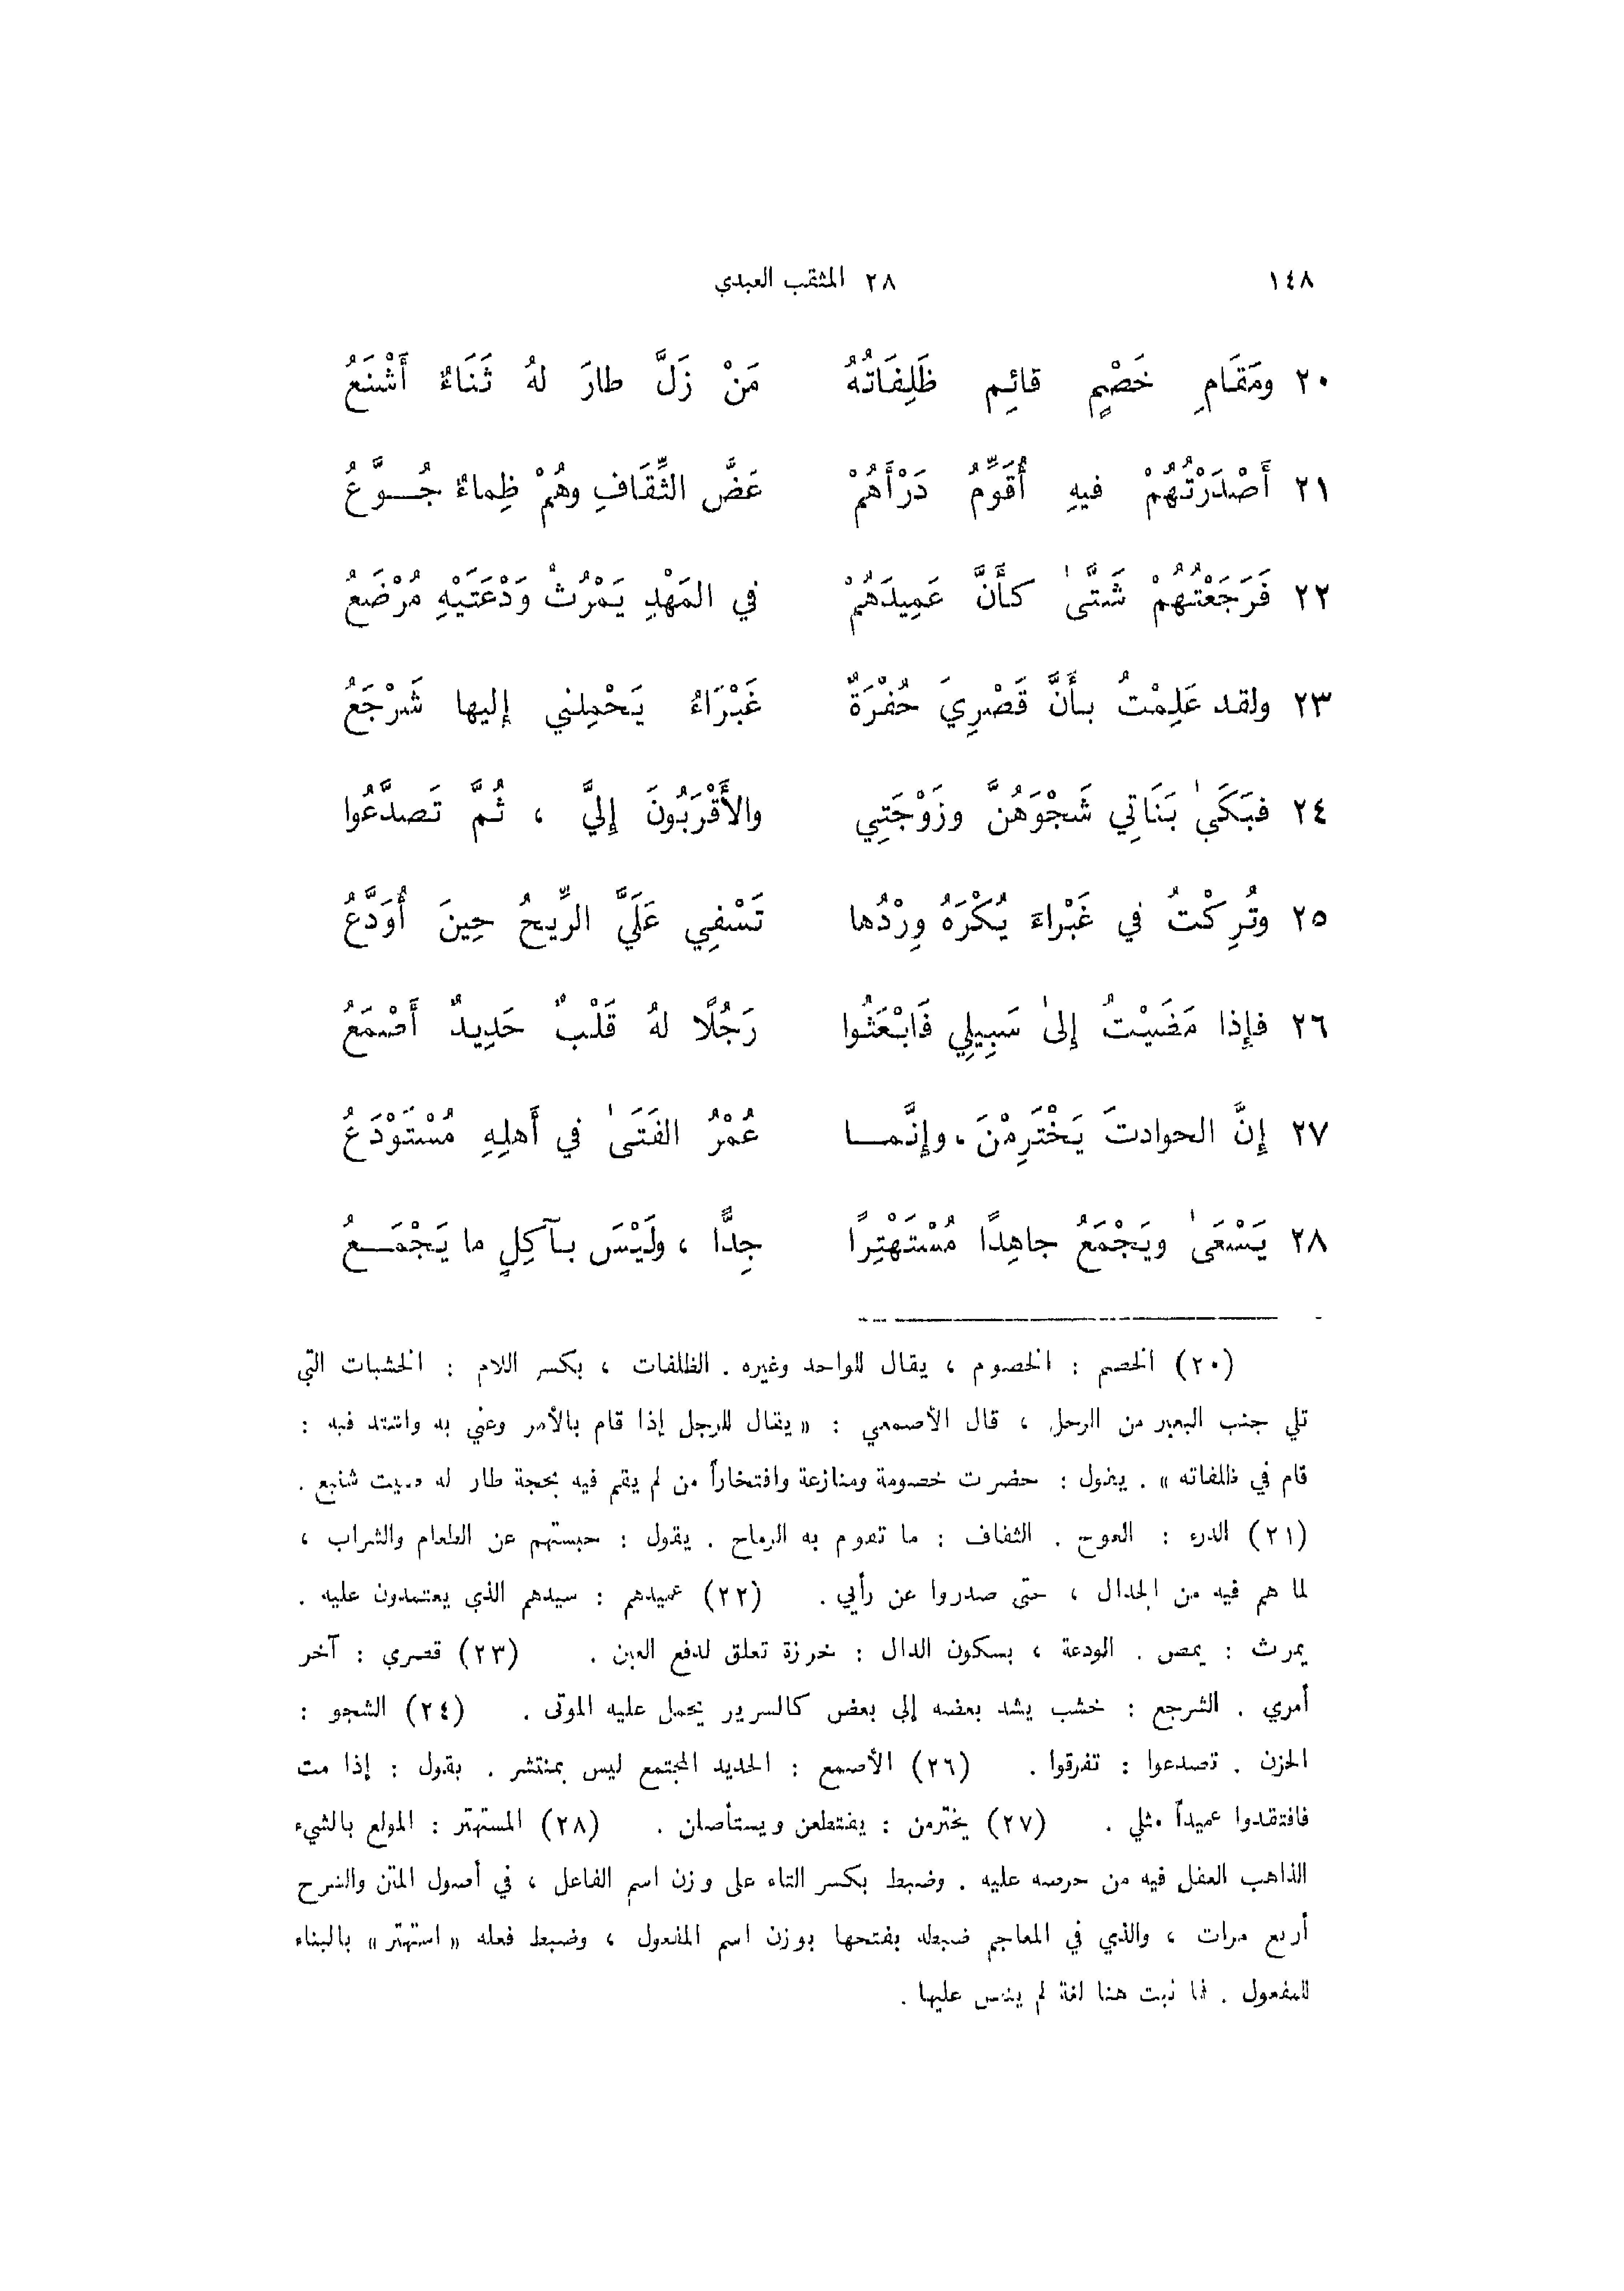 ١٤٨ ٢٨ المثقب العبدي
٢٠ ومَقَامِ خَصْمٍ قائِمٍ ظَلِفَاتُهُ مَنْ زَلَّ طارَ لهُ ثَنَاءٌ أَشْنَعُ
٢١ أَصْدَرْتُهُمْ فيهِ أُقَوِّمُ دَرْأَهُمْ عَضَّ الثِّقَافِ وهُمْ ظِماءٌ جُــوَّعُ
٢٢ فَرَجَعْتُهُمْ شَتَّىٰ كأَنَّ عَمِيدَهُمْ في المَهْدِ يَمْرُثُ وَدْعَتَيْهِ مُرْضَعُ
٢٣ ولقد عَلِمْتُ بأَنَّ قَصْرِيَ حُفْرَةٌ غَبْرَاءُ يَحْمِلني إليها شَرْجَعُ
٢٤ فبَكَىٰ بَنَاتِي شَجْوَهُنَّ وزَوْجَتِي والأَقْرَبُونَ إِليَّ ، ثُمَّ تَصدَّعُوا
٢٥ وتُرِكْتُ في غَبْراءَ يُكْرَهُ وِرْدُها تَسْفِي عَلَيَّ الرِّيحُ حِينَ أُوَدَّعُ
٢٦ فإِذا مَضَيْتُ إِلىٰ سَبِيلِي فَابْعَثُوا رَجُلًا لهُ قَلْبٌ حَدِيدٌ أَصْمَعُ
٢٧ إِنَّ الحوادثَ يَخْتَرِمْنَ ، وإِنَّمــا عُمْرُ الفَتَىٰ في أَهلِهِ مُسْتَوْدَعُ
٢٨ يَسْعَىٰ ويَجْمَعُ جاهِدًا مُسْتَهْتِرًا جِدًّا ، ولَيْسَ بآكِلٍ ما يَجْمَــعُ
(٢٠) الخصم : الخصوم ، يقال للواحد وغيره . الظلفات ، بكسر اللام : الخشبات التي
تلي جنب البعير من الرحل ، قال الأصمعي : « يقال للرجل إذا قام بالأمر وعني به واشتد فيه :
قام في ظلفاته » . يقول : حضرت خصومة ومنازعة وافتخاراً من لم يقم فيه بحجة طار له صيت شنيع .
(٢١) الدرء : العوج . الثقاف : ما تقوم به الرماح . يقول : حبستهم عن الطعام والشراب ،
لما هم فيه من الجدال ، حتى صدروا عن رأيي . (٢٢) عميدهم : سيدهم الذي يعتمدون عليه .
يمرث : يمص . الودعة ، بسكون الدال : خرزة تعلق لدفع العين . (٢٣) قصري : آخر
أمري . الشرجع : خشب يشد بعضه إلى بعض كالسرير يحمل عليه الموتى . (٢٤) الشجو :
الحزن . تصدعوا : تفرقوا . (٢٦) الأصمع : الحديد المجتمع ليس بمنتشر . يقول : إذا مت
فافتقدوا عميداً مثلي . (٢٧) يخترمن : يقتطعن ويستأصلن . (٢٨) المستهتر : المولع بالشيء
الذاهب العقل فيه من حرصه عليه . وضبط بكسر التاء على وزن اسم الفاعل ، في أصول المتن والشرح
أربع مرات ، والذي في المعاجم ضبطه بفتحها بوزن اسم المفعول ، وضبط فعله « استهتر » بالبناء
للمفعول . فما ثبت هنا لغة لم ينص عليها .